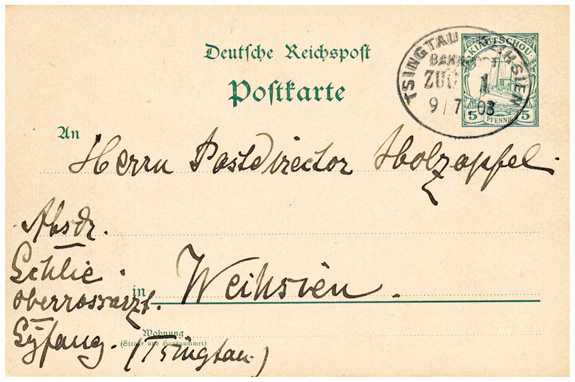 Deutsche Reichspost
Postkarte
KIAUTSCHOU
5 PFENNIG 5
TSINGTAU WEIHSIEN
BAHNPOST
ZUG 1
9/7 03
An
Herrn Postdirector Holzapfel.
Absdr.
Schlie.
Oberrossarzt.
in Weihsien.
Wohnung
(Straße und Hausnummer)
Syfang. (Tsingtau)